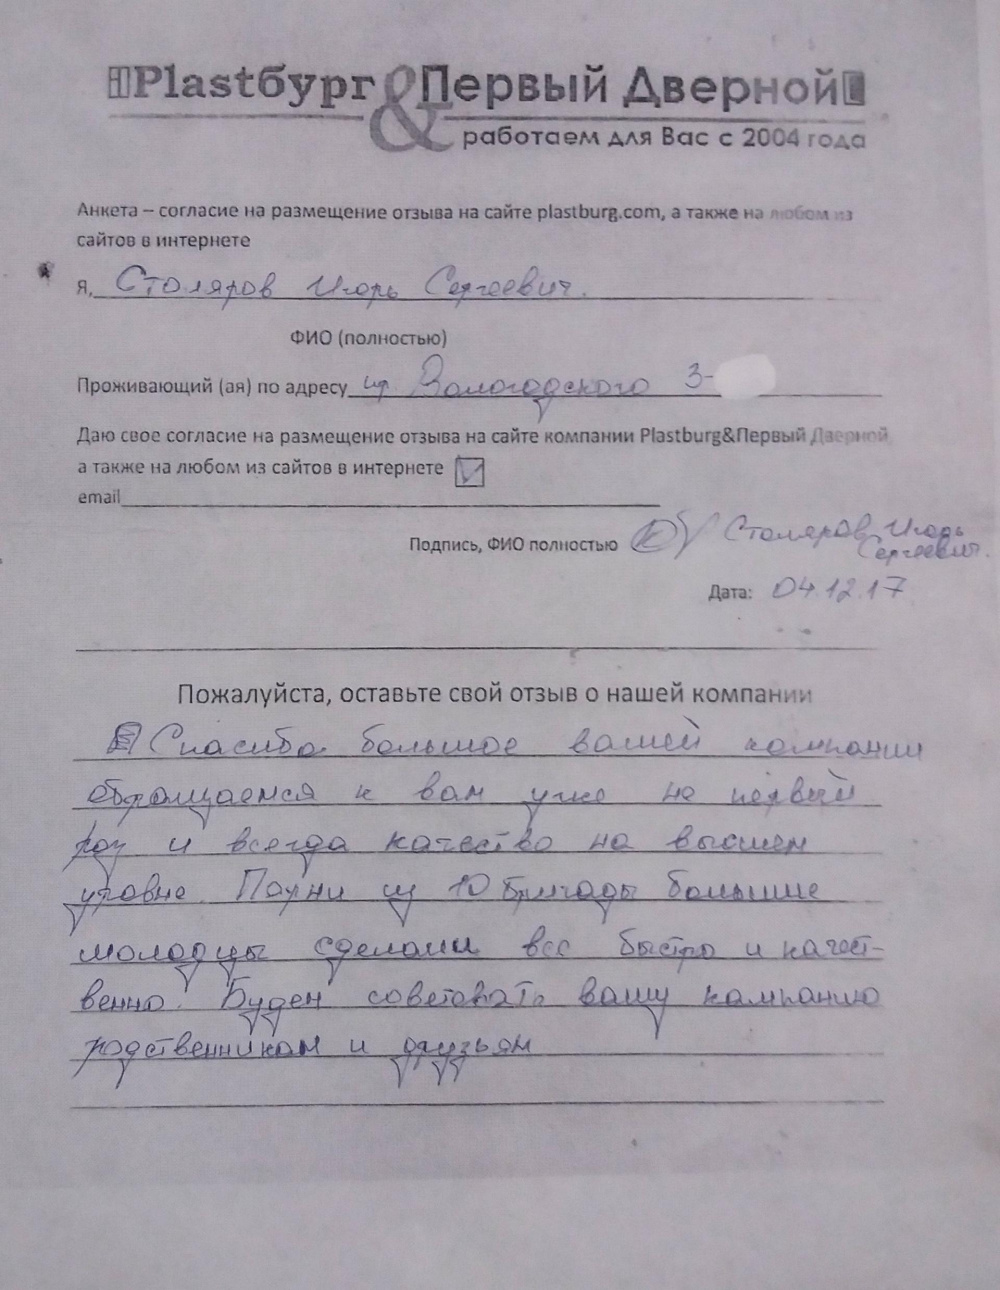 Plastбург & Первый Дверной
работаем для Вас с 2004 года
Анкета – согласие на размещение отзыва на сайте plastburg.com, а также на любом из
сайтов в интернете
Я, Столяров Игорь Сергеевич.
ФИО (полностью)
Проживающий (ая) по адресу Вологодского 3-
Даю свое согласие на размещение отзыва на сайте компании Plastburg&Первый Дверной
а также на любом из сайтов в интернете
email
Подпись, ФИО полностью Столяров Игорь
Сергеевич.
Дата: 04.12.17
Пожалуйста, оставьте свой отзыв о нашей компании
Спасибо большое вашей компании
обращаемся к вам уже не первый
раз и всегда качество на высшем
уровне. Парни из 10 бригады большие
молодцы сделали все быстро и качест-
венно. Будем советовать вашу кампанию
родственникам и друзьям